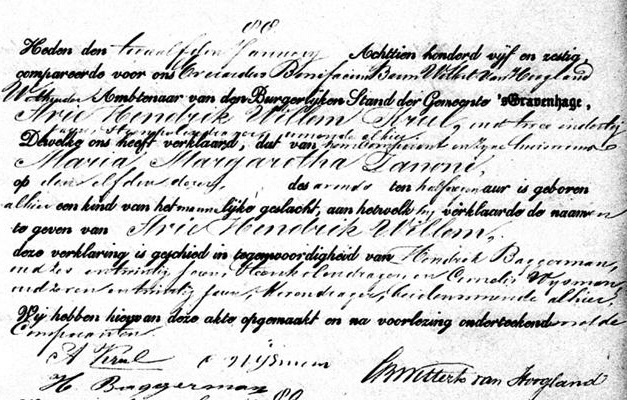 88
Heden den twaalfden January Achttien honderd vijf en zestig,
compareerde voor ons Bonifacius Willert van Hoogland
Wethouder Ambtenaar van den Burgerlijken Stand der Gemeente 's Gravenhage,
Arie Hendrik Willem Krul, oud twee en dertig
jaren, wonende alhier.
Dewelke ons heeft verklaard, dat van hem comparant en zijne huisvrouw
Maria Margaretha Zanoni,
op den elfden dezer, des avonds ten half uur is geboren
alhier een kind van het mannelijke geslacht, aan hetwelk hij verklaarde de namen
te geven van Arie Hendrik Willem,
deze verklaring is geschied in tegenwoordigheid van Hendrik Baggerman,
oud zes en twintig jaren, en Cornelis Wijsman,
oud zeven en twintig jaren, beiden wonende alhier.
Wij hebben hiervan deze akte opgemaakt en na voorlezing onderteekend met de
Comparanten.
A Krul C Wijsman
H. Baggerman van Hoogland